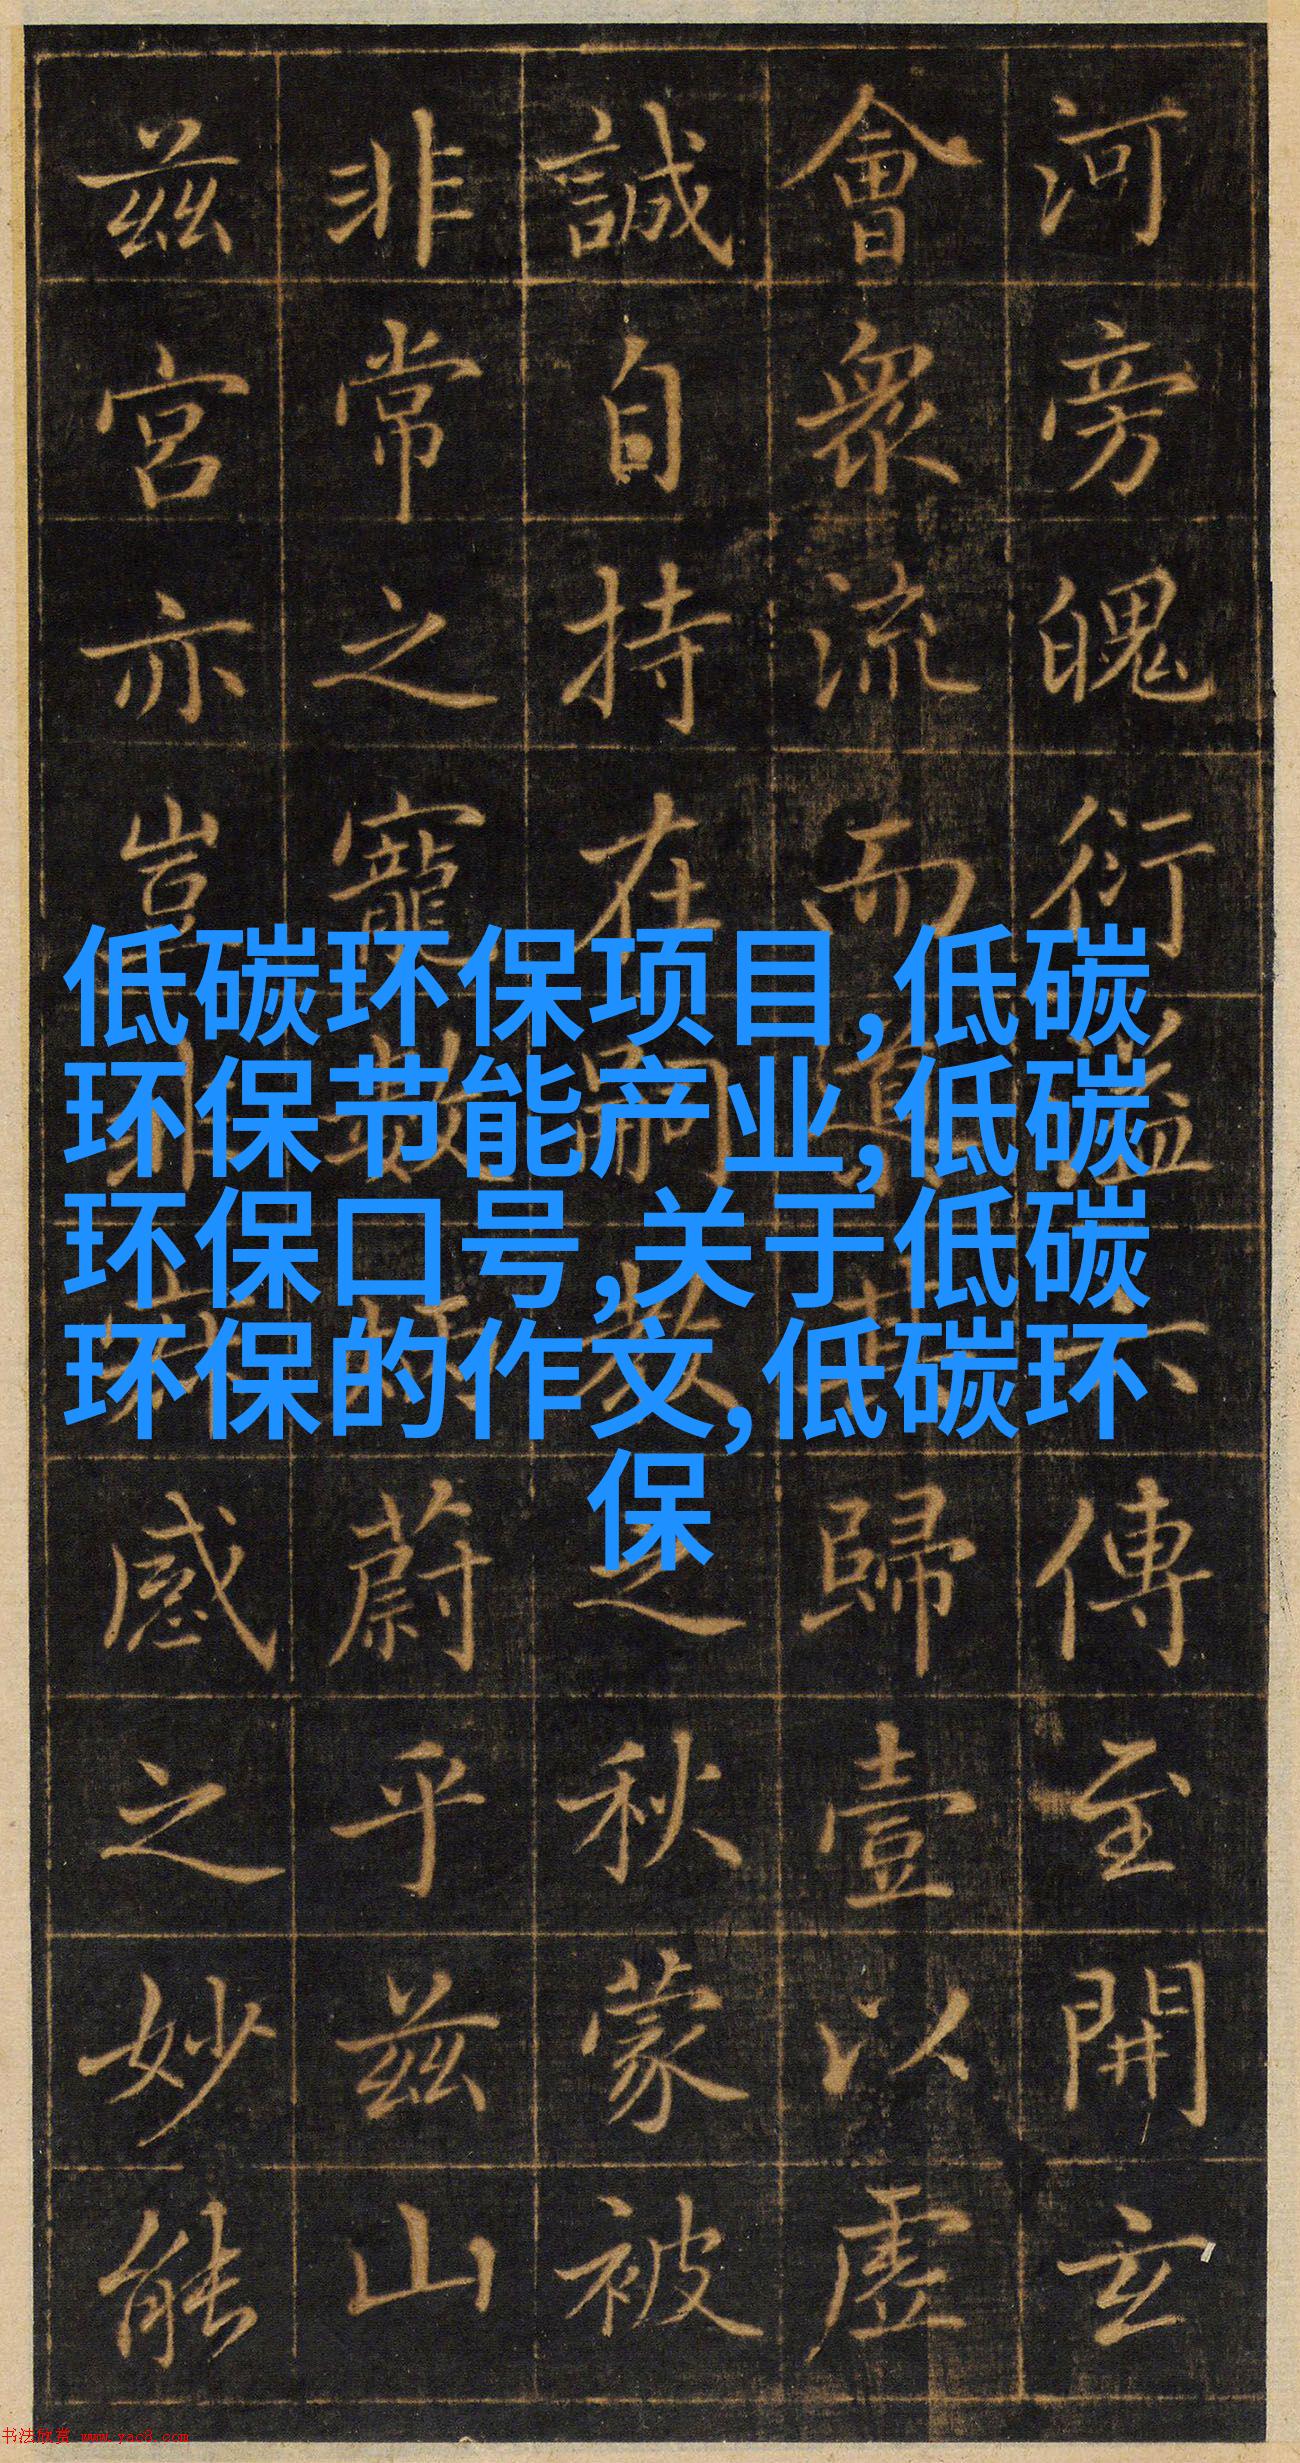 低碳环保项目,低碳
环保节能产业,低碳
环保口号,关于低碳
环保的作文,低碳环
保
河旁魄衍溢六傳至開玄
會衆流而道歸壹以虛
誠自持在嗣教之秋蒙被
非常之寵數炳蔚乎兹山
兹宫亦豈非感之妙能
书法欣赏 www.yac8.com